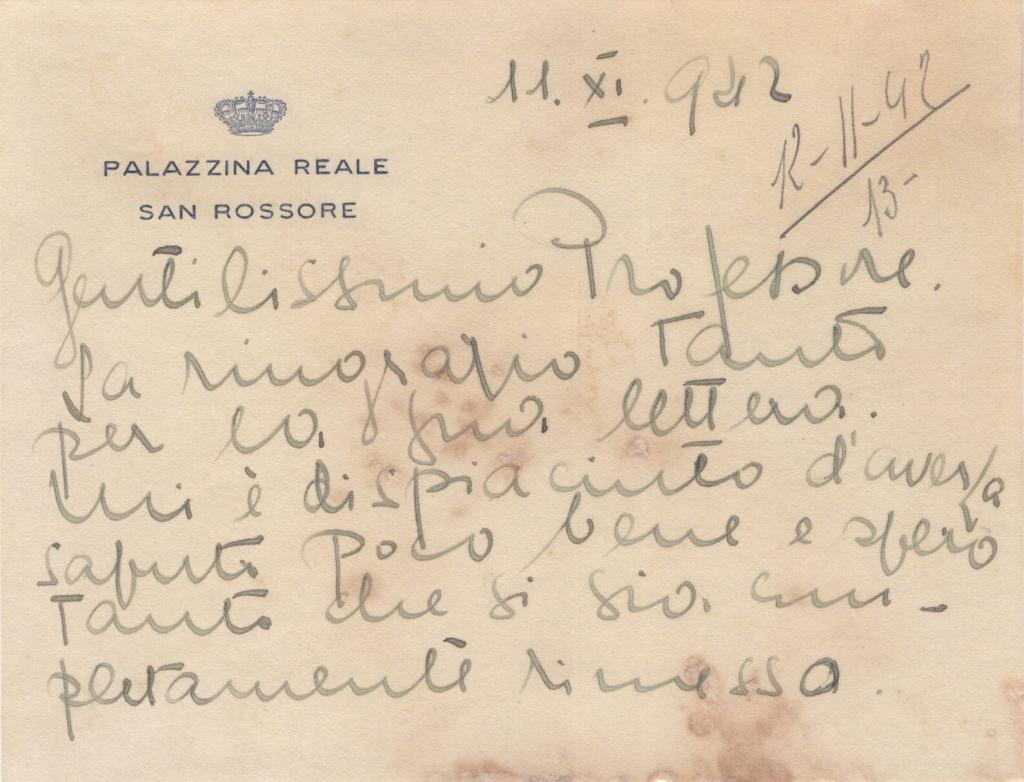 11. XI. 942
12-11-42
13-
PALAZZINA REALE
SAN ROSSORE
Gentilissimo Professore.
La ringrazio tanto
per la sua lettera.
Mi è dispiaciuto d'averla
saputo poco bene e spero
tanto che si sia com-
pletamente rimesso.